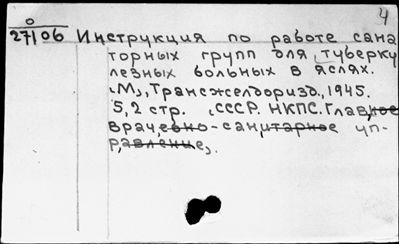 4
0
27106 Инструкция по работе сана
торных групп для туберку
лезных больных в яслях.
М., Трансжелдориздат, 1945.
5,2 стр. (СССР. НКПС. Главное
врачебно-санитарное уп-
равление).